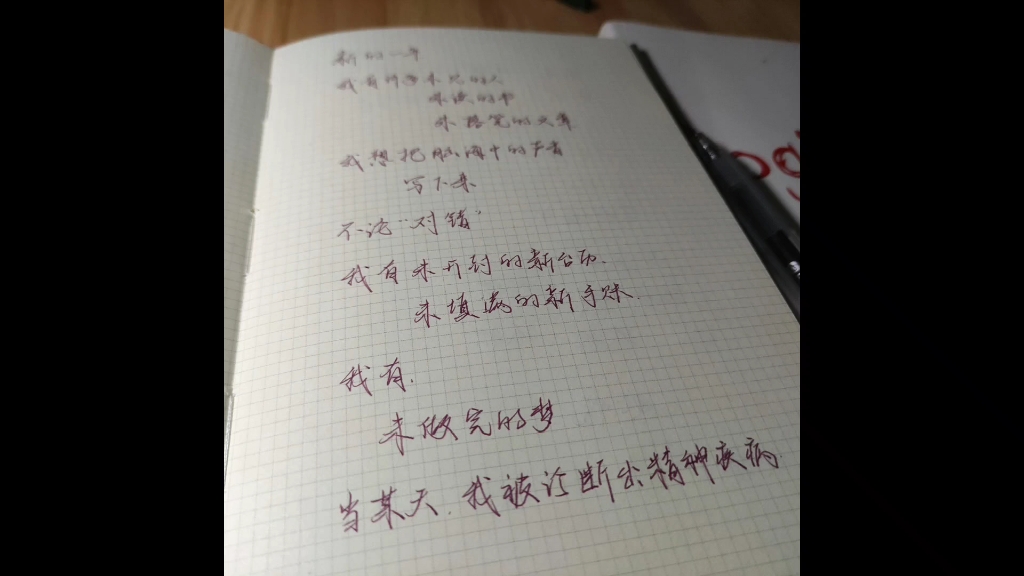 新的一年
我有许多未见的人
未读的书
未落完的文章
我想把脑海中的声音
写下来
不论“对错”
我有未开封的新台历.
未填满的新手账.
我有.
未做完的梦
当某天.我被诊断出精神疾病
og